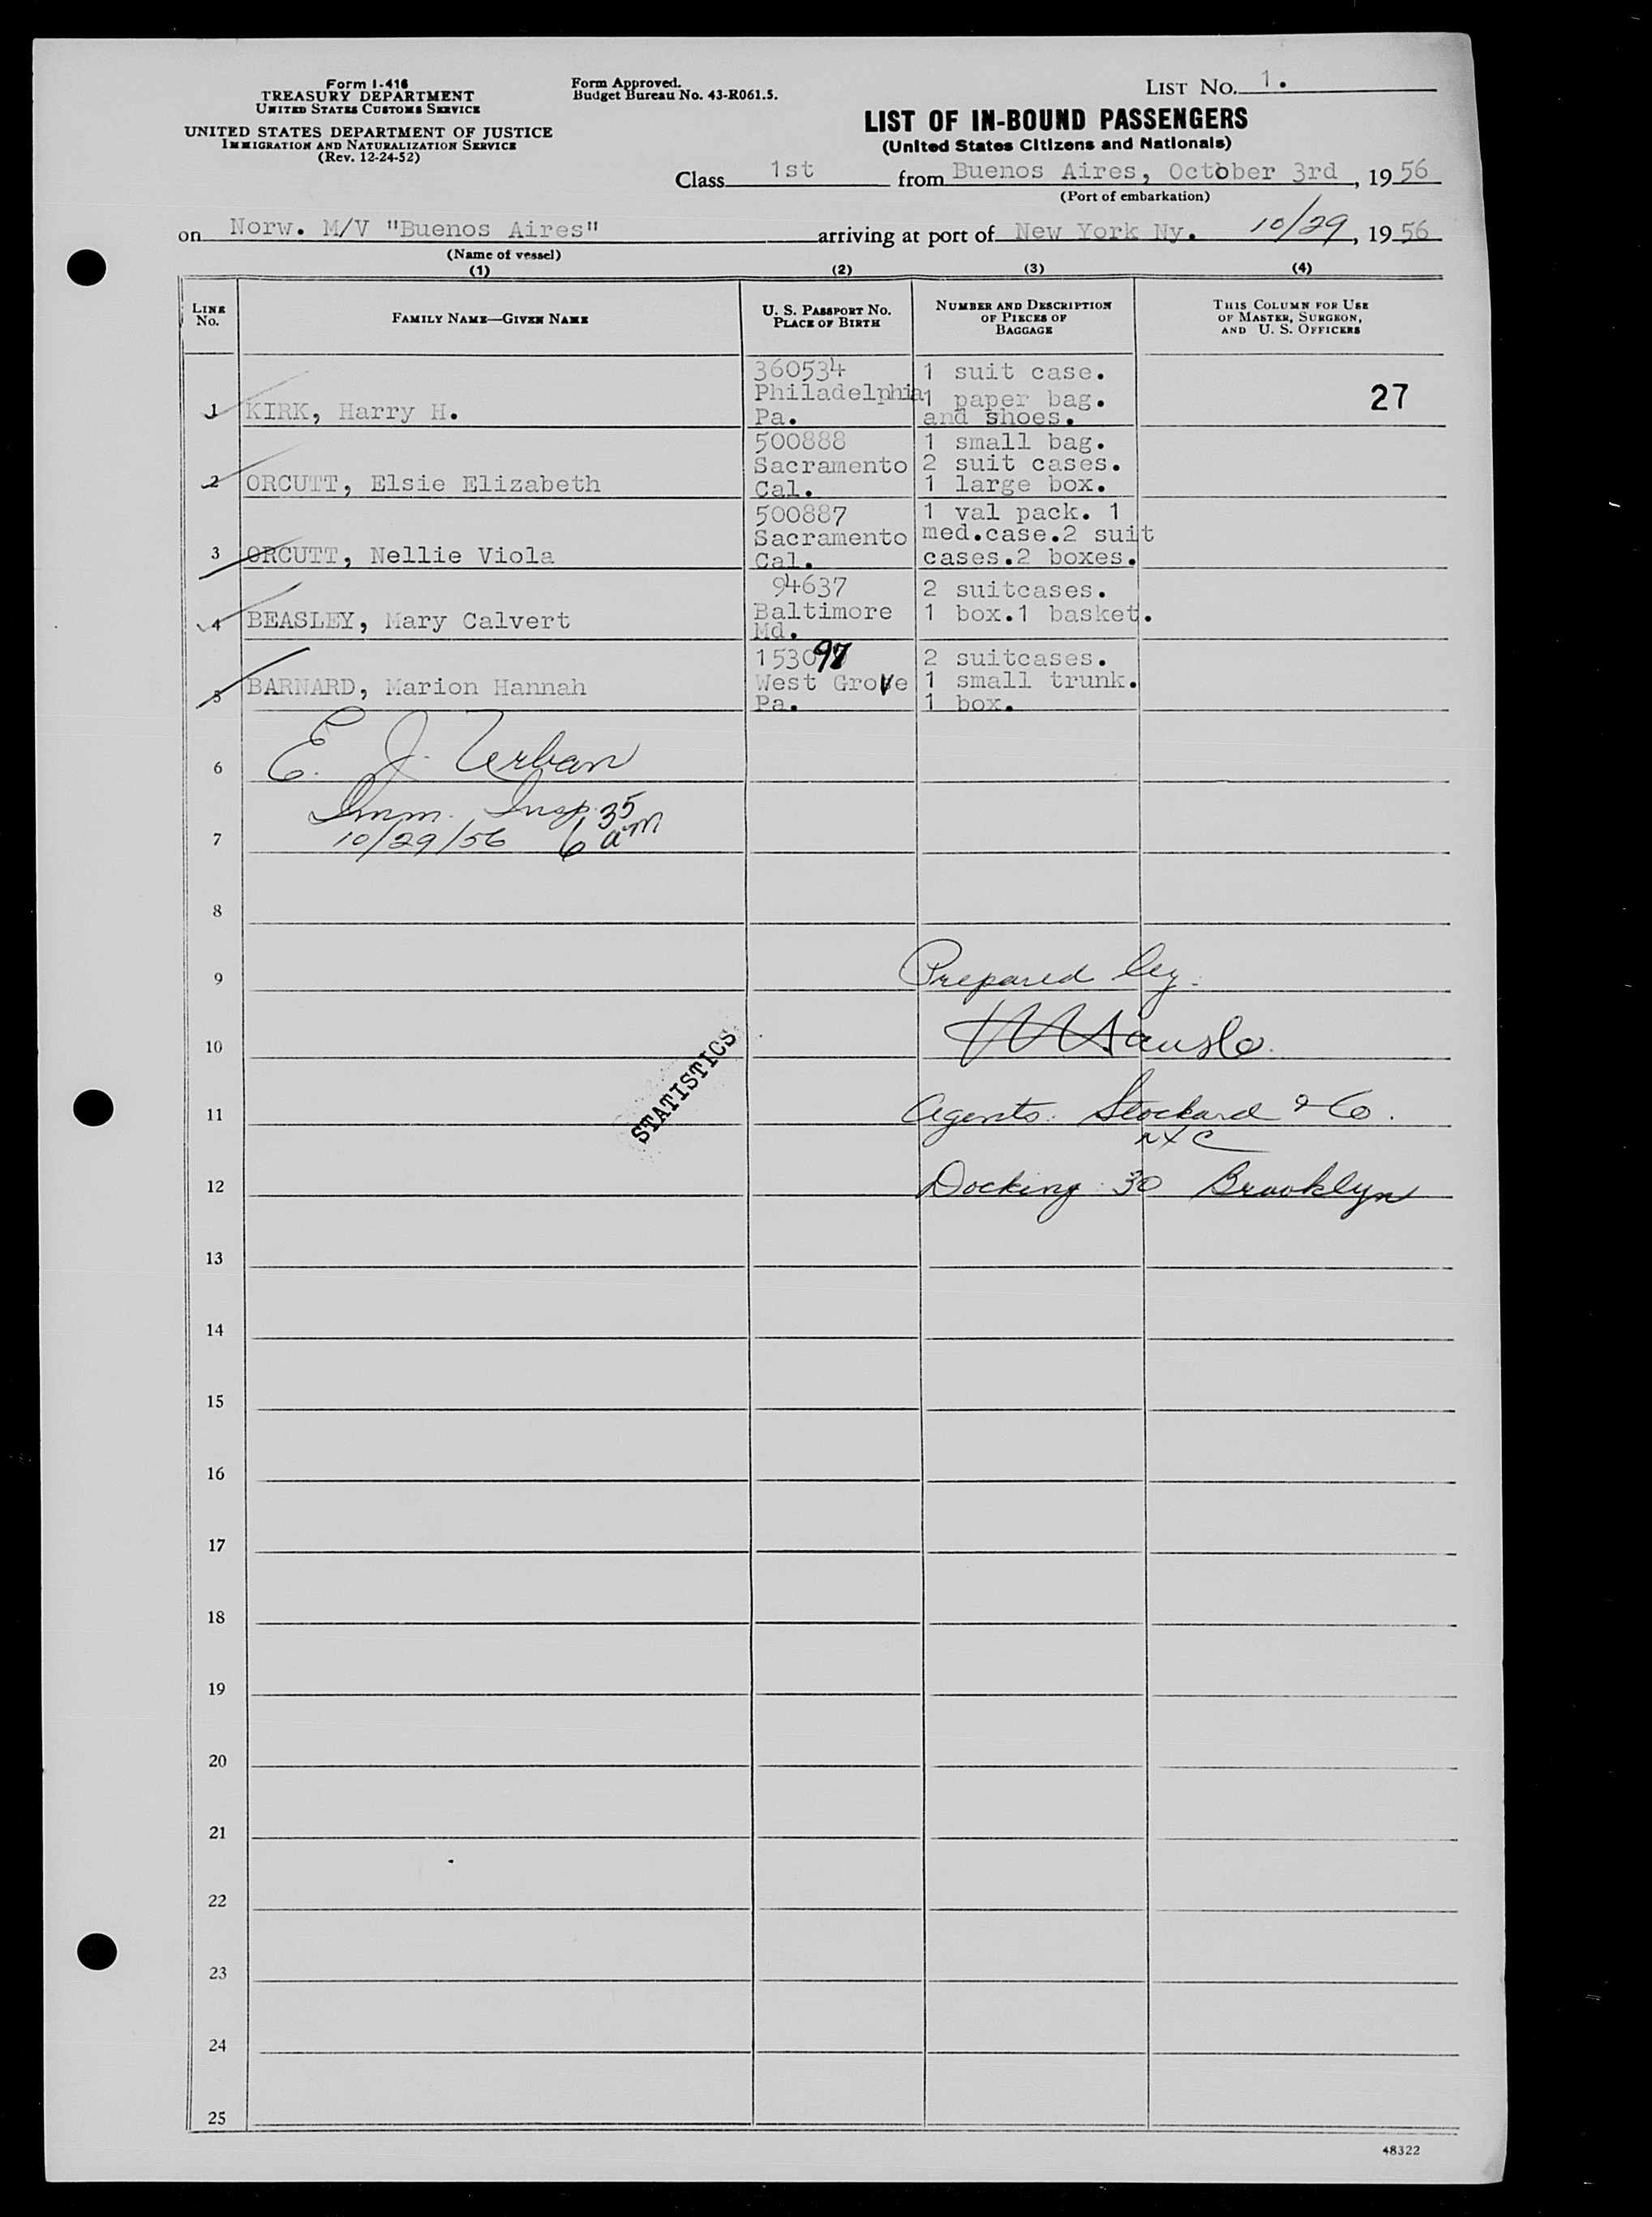 Form I-416
TREASURY DEPARTMENT
UNITED STATES CUSTOMS SERVICE
UNITED STATES DEPARTMENT OF JUSTICE
IMMIGRATION AND NATURALIZATION SERVICE
(Rev. 12-24-52)
Form Approved.
Budget Bureau No. 43-R061.5.
LIST NO. 1.
LIST OF IN-BOUND PASSENGERS
(United States Citizens and Nationals)
Class 1st from Buenos Aires, October 3rd, 1956
(Port of embarkation)
on Norw. M/V "Buenos Aires" arriving at port of New York Ny. 10/29, 1956
(Name of vessel)
(1) (2) (3) (4)
LINE No.
FAMILY NAME—GIVEN NAME
U. S. PASSPORT NO.
PLACE OF BIRTH
NUMBER AND DESCRIPTION
OF PIECES OF
BAGGAGE
THIS COLUMN FOR USE
OF MASTER, SURGEON,
AND U. S. OFFICERS
360534 1 suit case.
Philadelphia 1 paper bag. 27
1 KIRK, Harry H. Pa. and shoes.
500888 1 small bag.
Sacramento 2 suit cases.
2 ORCUTT, Elsie Elizabeth Cal. 1 large box.
500887 1 val pack. 1
Sacramento med.case.2 suit
3 ORCUTT, Nellie Viola Cal. cases.2 boxes.
94637 2 suitcases.
4 BEASLEY, Mary Calvert Baltimore 1 box.1 basket.
Md.
153097 2 suitcases.
5 BARNARD, Marion Hannah West Grove 1 small trunk.
Pa. 1 box.
6 E. J. Urban
Imm. Insp. 6 35 am
7 10/29/56
8
9 Prepared by:
10
STATISTICS
11 Agents: Stockard & Co.
NYC
12 Docking: 30 Brooklyn
13
14
15
16
17
18
19
20
21
22
23
24
25
48322